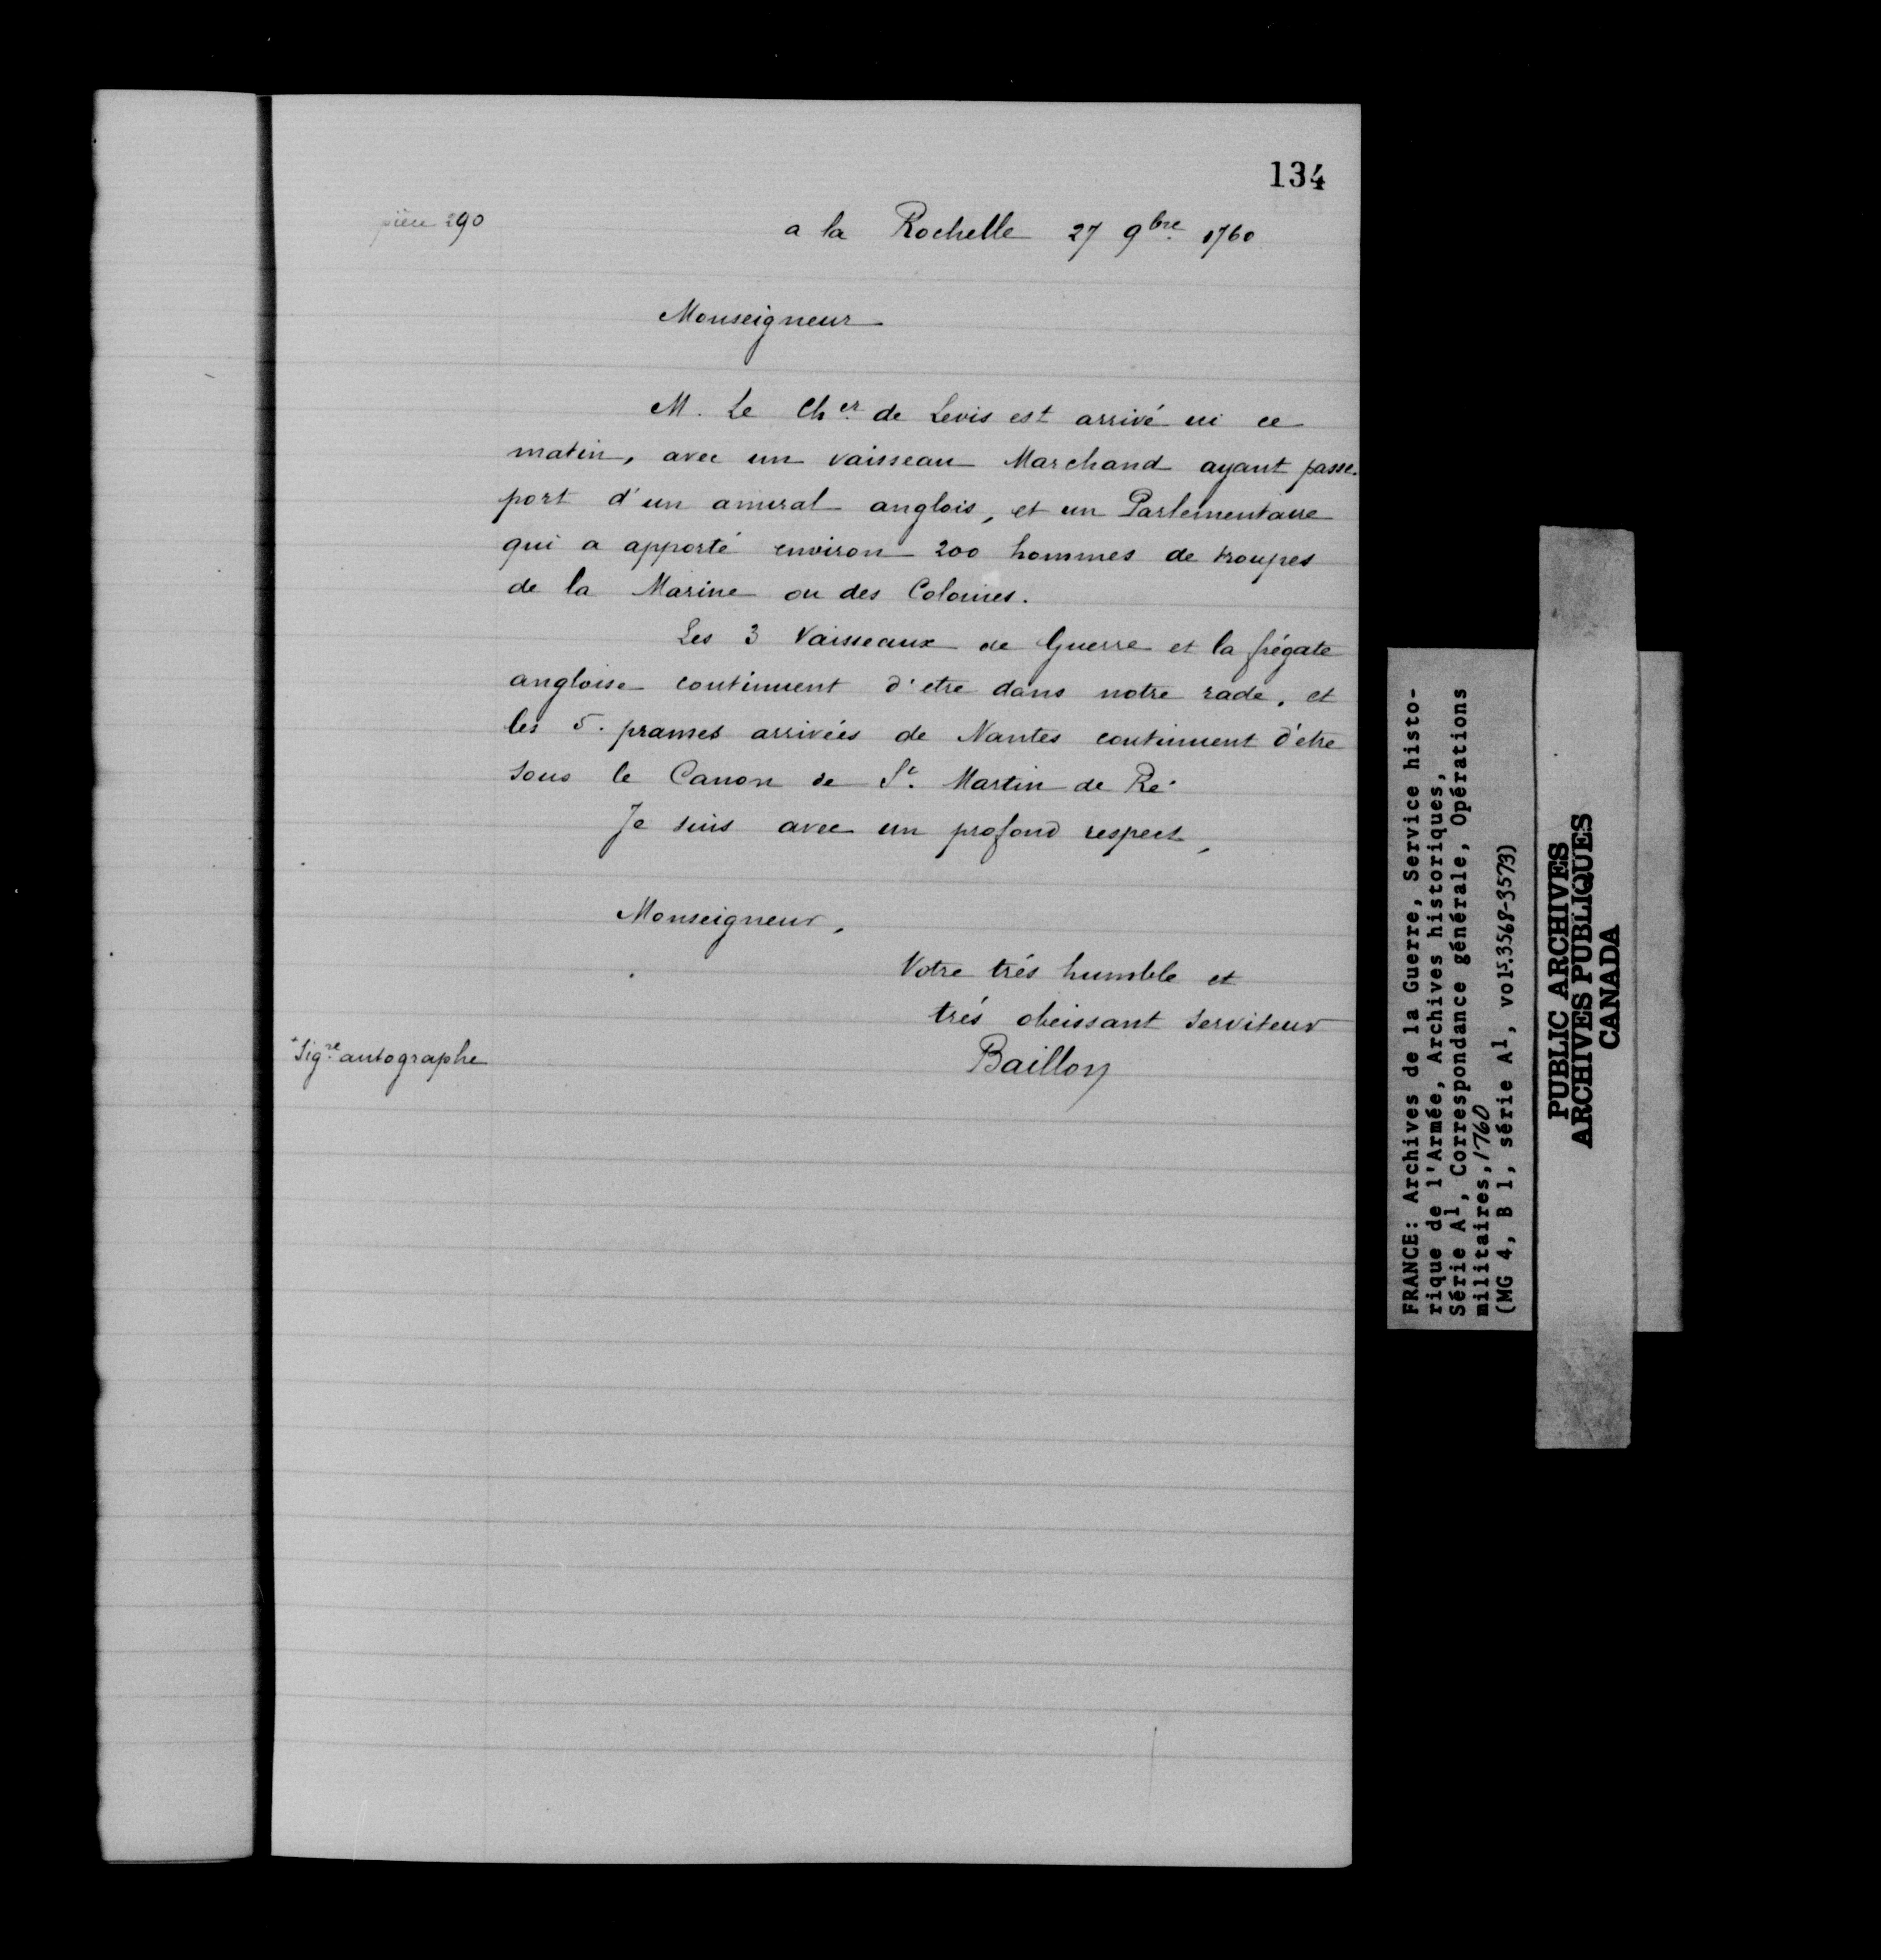 134
pièce 290
a la Rochelle 27 9bre 1760
Monseigneur
M. Le Cher de Levis est arrivé ici ce
matin, avec un vaisseau Marchand ayant passe-
port d'un amiral anglois, et un Parlementaire
qui a apporté environ 200 hommes de troupes
de la Marine ou des Colonies.
Les 3 Vaisseaux de Guerre et la frégate
angloise continuent d'etre dans notre rade, et
les 5. prames arrivées de Nantes continuent d'etre
sous le Canon de St. Martin de Ré.
Je suis avec un profond respect,
Monseigneur,
Votre trés humble et
trés obeissant serviteur
Sigre autographe
Baillon
FRANCE: Archives de la Guerre, Service histo-
rique de l'Armée, Archives historiques,
Série A1, Correspondance générale, Opérations
militaires, 1760
(MG 4, B 1, série A1, vols. 3568-3573)
PUBLIC ARCHIVES
ARCHIVES PUBLIQUES
CANADA